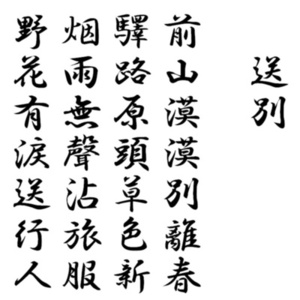 送別
前山漠漠別離春
驛路原頭草色新
烟雨無聲沾旅服
野花有淚送行人